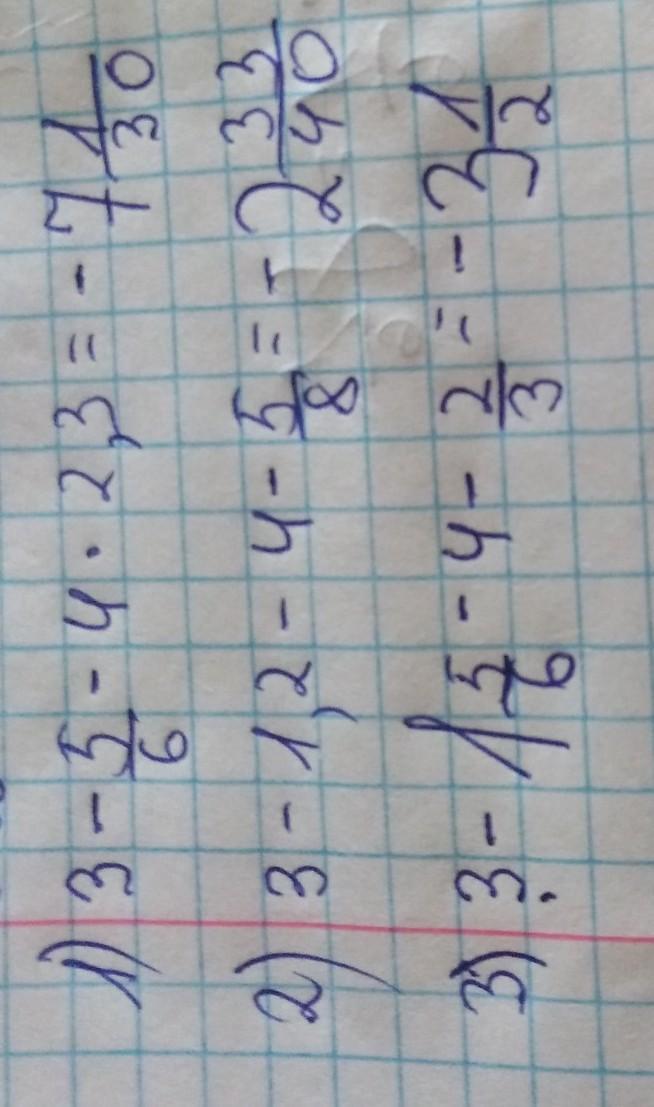 1) 3 - 5/6 - 4 · 2,3 = - 7 1/30
2) 3 - 1,2 - 4 - 5/8 = - 2 33/40
3) 3 - 1 5/6 - 4 - 2/3 = - 3 1/2